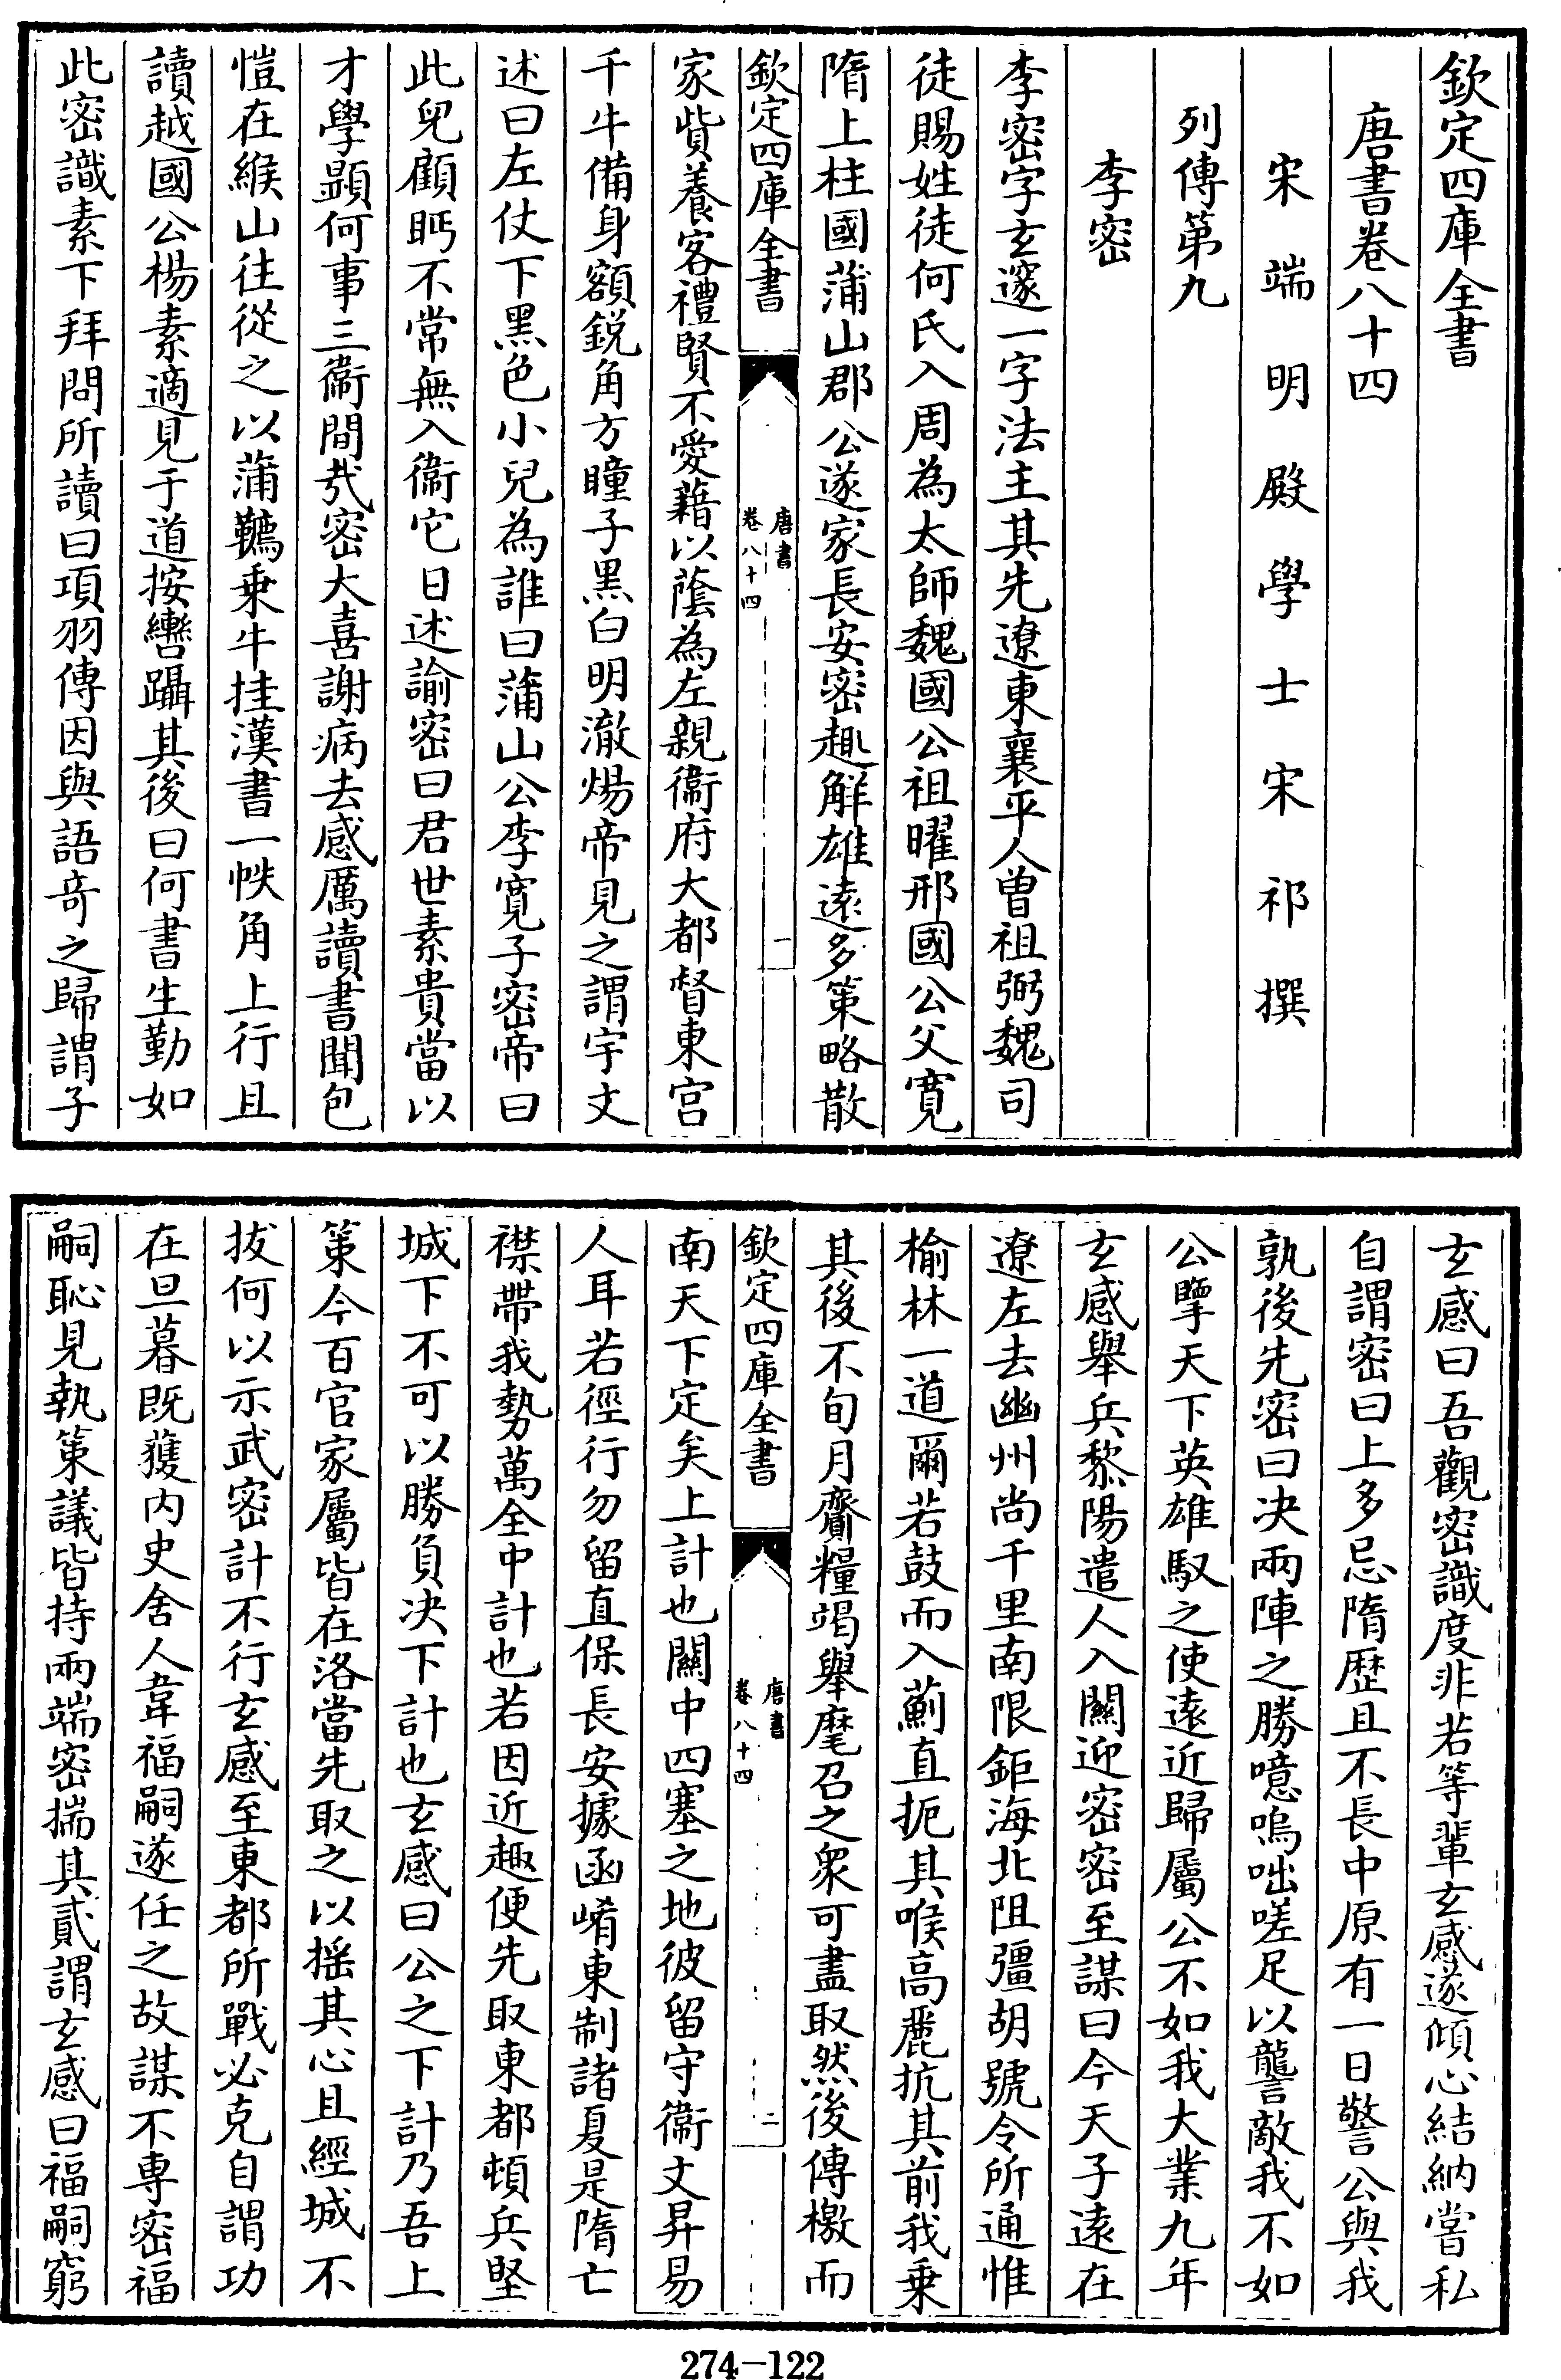 欽定四庫全書
唐書卷八十四
宋端明殿學士宋祁撰
列傳第九
李密
李密字玄邃一字法主其先遼東襄平人曾祖弼魏司
徒賜姓徒何氏入周為太師魏國公祖曜邢國公父寬
隋上柱國蒲山郡公遂家長安密趣解雄遠多策略散
欽定四庫全書
唐書
卷八十四
一
家貲養客禮賢不愛藉以蔭為左親衞府大都督東宮
千牛備身額銳角方瞳子黑白明澈煬帝見之謂宇文
述曰左仗下黑色小兒為誰曰蒲山公李寬子密帝曰
此兒顧眄不常無入衞它日述諭密曰君世素貴當以
才學顯何事三衞間哉密大喜謝病去感厲讀書聞包
愷在緱山往從之以蒲韉乗牛挂漢書一帙角上行且
讀越國公楊素適見于道按轡躡其後曰何書生勤如
此密識素下拜問所讀曰項羽傳因與語竒之歸謂子
玄感曰吾觀密識度非若等輩玄感遂傾心結納嘗私
自謂密曰上多忌隋歴且不長中原有一日警公與我
孰後先密曰决兩陣之勝噫嗚咄嗟足以讋敵我不如
公擥天下英雄馭之使遠近歸屬公不如我大業九年
玄感舉兵黎陽遣人入關迎密密至謀曰今天子遠在
遼左去幽州尚千里南限鉅海北阻彊胡號令所通惟
榆林一道爾若鼓而入薊直扼其喉高麗抗其前我乗
其後不旬月齎糧竭舉麾召之衆可盡取然後傳檄而
欽定四庫全書
唐書
卷八十四
二
南天下定矣上計也關中四塞之地彼留守衞文昇易
人耳若徑行勿留直保長安據函崤東制諸夏是隋亡
襟帶我勢萬全中計也若因近趣便先取東都頓兵堅
城下不可以勝負决下計也玄感曰公之下計乃吾上
策今百官家屬皆在洛當先取之以摇其心且經城不
拔何以示武密計不行玄感至東都所戰必克自謂功
在旦暮既獲内史舍人韋福嗣遂任之故謀不専密福
嗣恥見執策議皆持兩端密揣其貳謂玄感曰福嗣窮
274-122